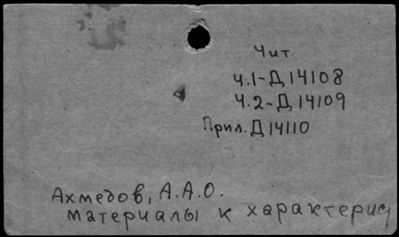 Чит
ч.1-Д14108
ч.2-Д14109
Прил.Д14110
Ахмедов, А.А.О.
Материалы к характерис